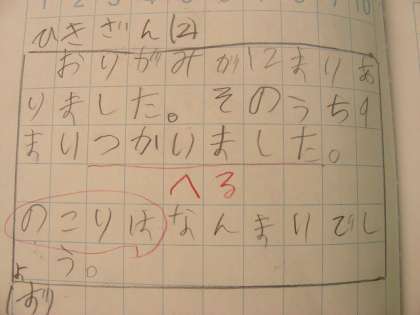 ひきざん(2)
おりがみが12まいあ
りました。そのうち9
まいつかいました。
へる
のこりはなんまいでし
ょう。
(ず)